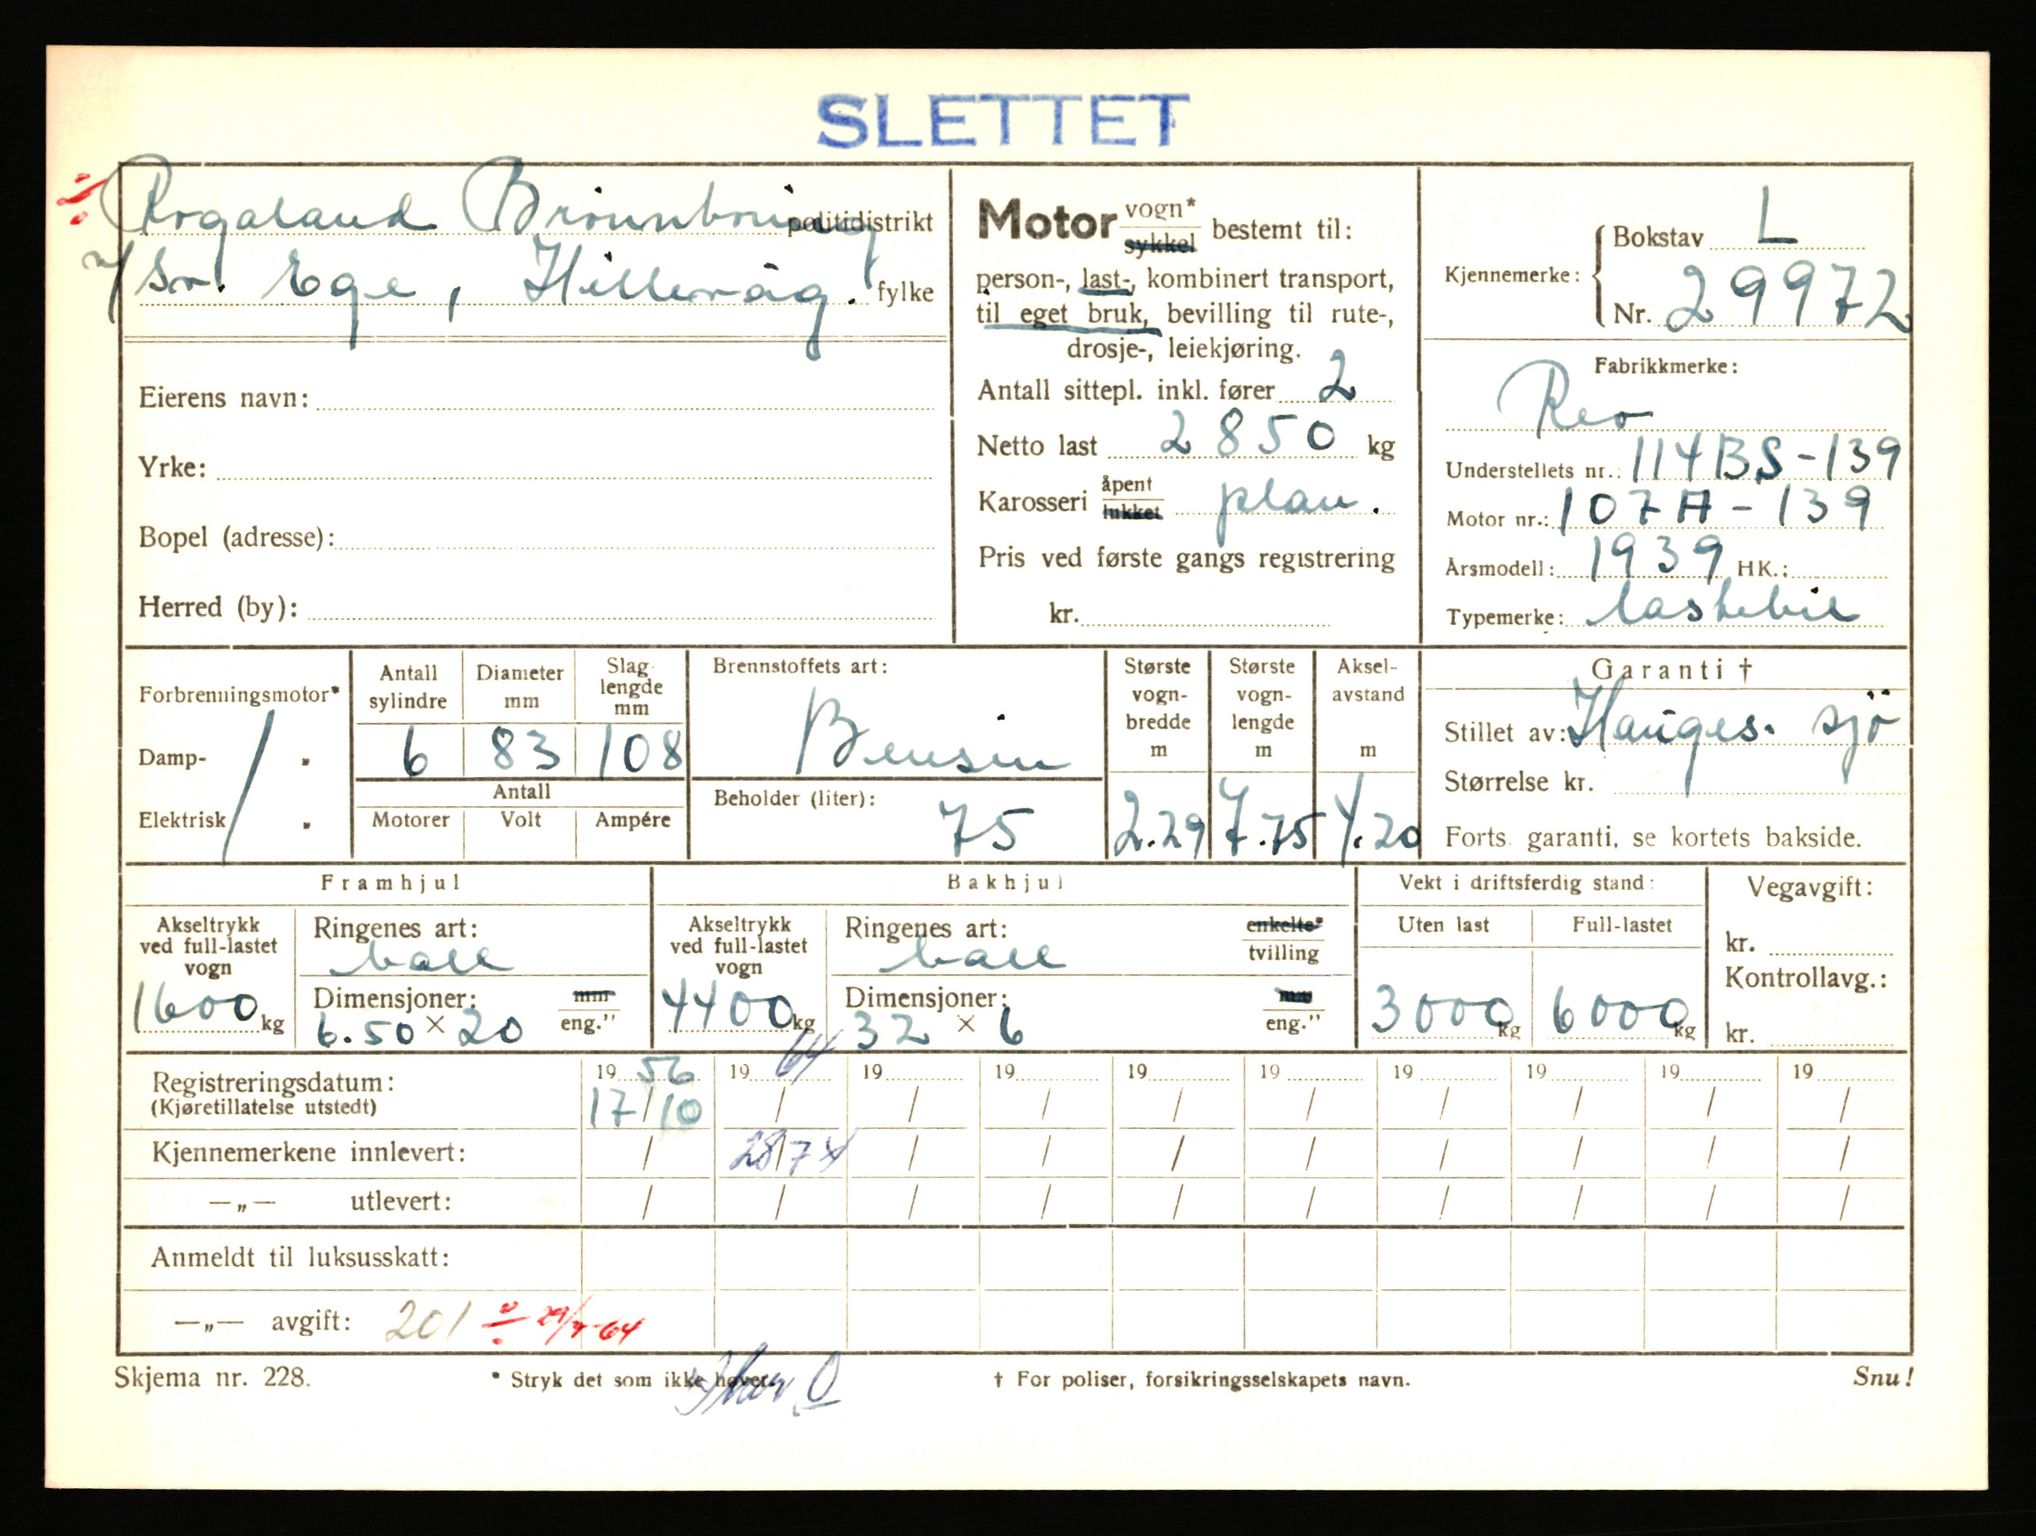 SLETTET
Rogaland Brönnboring politidistrikt
v/ Sv. Ege, Hillevåg. fylke
Eierens navn:
Yrke:
Bopel (adresse):
Herred (by):
Motor vogn* sykkel bestemt til:
person-, last-, kombinert transport,
til eget bruk, bevilling til rute-,
drosje-, leiekjøring.
Antall sittepl. inkl. fører 2
Netto last 2850 kg
Karosseri åpent lukket plan.
Pris ved første gangs registrering
kr.
Kjennemerke: Bokstav L
Nr. 29972
Fabrikkmerke:
Reo
Understellets nr.: 114BS-139
Motor nr.: 107A-139
Årsmodell: 1939 HK.:
Typemerke: lastebil
Forbrenningsmotor*
Damp- "
Elektrisk "
Antall sylindre 6
Diameter mm 83
Slaglengde mm 108
Antall
Motorer Volt Ampére
Brennstoffets art:
Bensin
Beholder (liter):
75
Største vogn-bredde m 2.29
Største vogn-lengde m 7.75
Aksel-avstand m 4.20
Garanti †
Stillet av: Hauges. sjö
Størrelse kr.
Forts. garanti, se kortets bakside.
Framhjul
Akseltrykk ved full-lastet vogn 1600 kg
Ringenes art: ball
Dimensjoner: mm eng." 6.50 × 20
Bakhjul
Akseltrykk ved full-lastet vogn 4400 kg
Ringenes art: enkelte* tvilling ball
Dimensjoner: mm eng." 32 × 6
Vekt i driftsferdig stand:
Uten last Full-lastet
3000 kg 6000 kg
Vegavgift:
kr.
Kontrollavg.:
kr.
Registreringsdatum: 19 56 19 64 19 19 19 19 19 19 19 19
(Kjøretillatelse utstedt) 17/10 / / / / / / / / /
Kjennemerkene innlevert: / 28/7 / / / / / / / /
—„— utlevert: / / / / / / / / / /
Anmeldt til luksusskatt:
—„— avgift: 201 29/7-64
Skjema nr. 228.
* Stryk det som ikke høver.
† For poliser, forsikringsselskapets navn.
Snu!